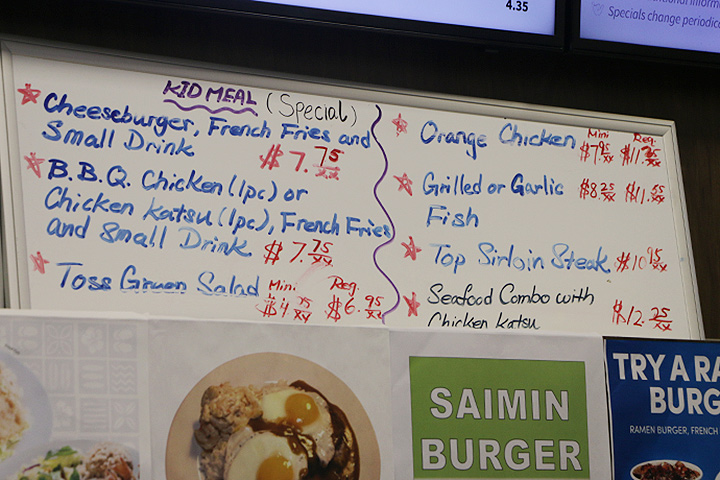 4.35
Specials change periodica
KID MEAL (Special)
Cheeseburger, French Fries and
Small Drink $7.75/xx
B.B.Q. Chicken (1pc) or
Chicken Katsu (1pc), French Fries
and Small Drink $7.75/xx
Mini Reg.
Toss Green Salad $4.75/xx $6.95/xx
Mini Reg.
Orange Chicken $7.95/xx
Grilled or Garlic $8.25/xx $11.55/xx
Fish
Top Sirloin Steak $10.95/xx
Seafood Combo with
Chicken Katsu $12.25/xx
SAIMIN
BURGER
TRY A RA
BURG
RAMEN BURGER, FRENCH